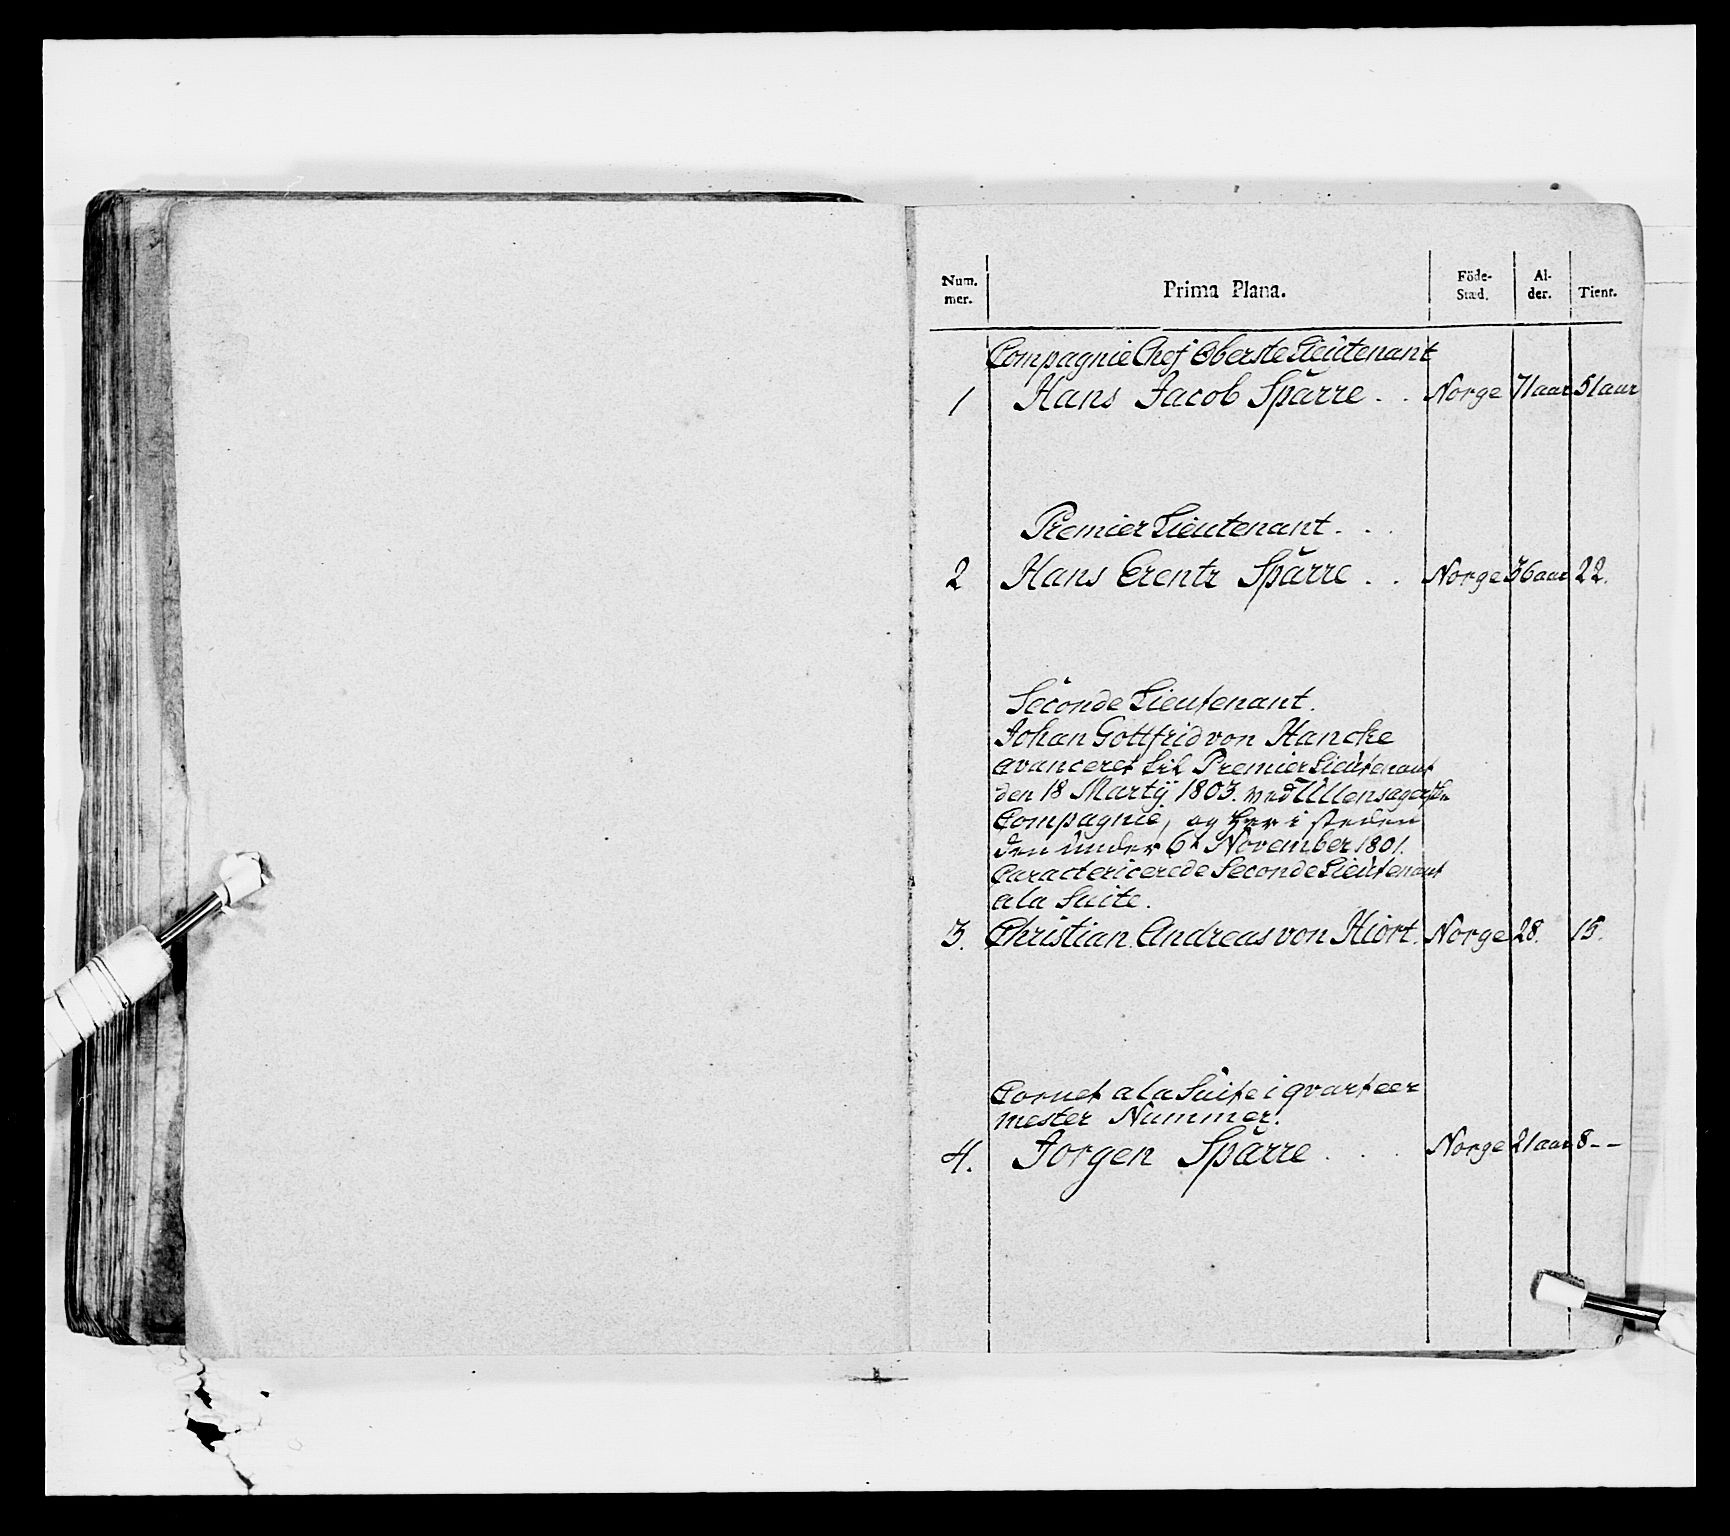 Num-
mer.
Prima Plana.
Föde-
Stæd.
Al-
der.
Tient.
Compagnie Chef Oberste Lieutenant
1 Hans Jacob Sparre . . Norge 71 aar 51 aar
Premier Lieutenant . . .
2 Hans Erentz Sparre . . Norge 36 aar 22.
Seconde Lieutenant.
Johan Gottfrid von Hancke
avanceret til Premier Lieutenant
den 18 Martÿ 1803. ved Ullensagerske
Compagnie, og her i steden
den under 6t November 1801.
Caractericerede Seconde Lieutenant
a la Suite.
3. Christian Andreas von Hiort. Norge 28. 15.
Cornet a la Suite i qvarteer
mester Nummer.
4. Jorgen Sparre . . . Norge 21 aar 8 - -